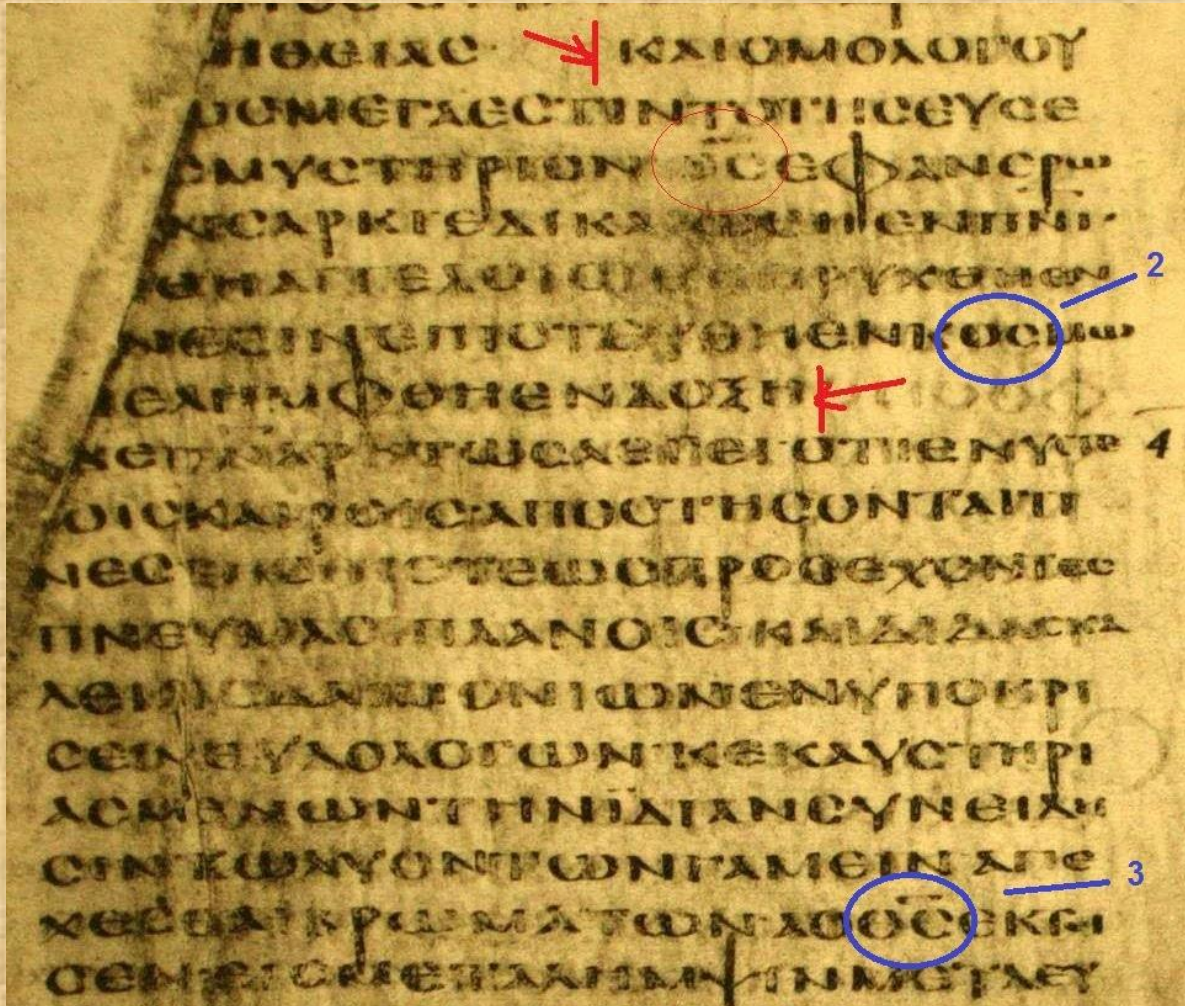 ΗΘΕΙΑϹ· ΚΑΙΟΜΟΛΟΓΟΥ
ΩϹΜΕΓΑΕϹΤΙΝΤΟΤΗϹΕΥϹΕ
ϹΜΥϹΤΗΡΙΟΝΘ̅Ϲ̅ΕΦΑΝΕΡΩ
ΝϹΑΡΚΙΕΔΙΚΑΙΩΘΗΕΝΠ̅Ν̅Ι̅·
ΘΗΑΓΓΕΛΟΙϹΕΚΗΡΥΧΘΗΕΝ
ΝΕϹΙΝΕΠΙϹΤΕΥΘΗΕΝΚΟϹΜΩ 2
ΝΕΛΗΜΦΘΗΕΝΔΟΞΗ
ΔΕΠ̅Ν̅ΑΡΗΤΩϹΛΕΓΕΙΟΤΙΕΝΥϹΤΕ 4
ΡΟΙϹΚΑΙΡΟΙϹΑΠΟϹΤΗϹΟΝΤΑΙΤΙ
ΝΕϹΤΗϹΠΙϹΤΕΩϹΠΡΟϹΕΧΟΝΤΕϹ
ΠΝΕΥΜΑϹΙΠΛΑΝΟΙϹΚΑΙΔΙΔΑϹΚΑ
ΛΕΙΑΙϹΔΑΙΜΟΝΙΩΝΕΝΥΠΟΚΡΙ
ϹΕΙΨΕΥΔΟΛΟΓΩΝΚΕΚΑΥϹΤΗΡΙ
ΑϹΜΕΝΩΝΤΗΝΪΔΙΑΝϹΥΝΕΙΔΗ
ϹΙΝΚΩΛΥΟΝΤΩΝΓΑΜΕΙΝΑΠΕ
ΧΕϹΘΑΙΒΡΩΜΑΤΩΝΑΟΘ̅Ϲ̅ΕΚΤΙ 3
ϹΕΝΕΙϹΜΕΤΑΛΗΜΨΙΝΜΕΤΑΕΥ